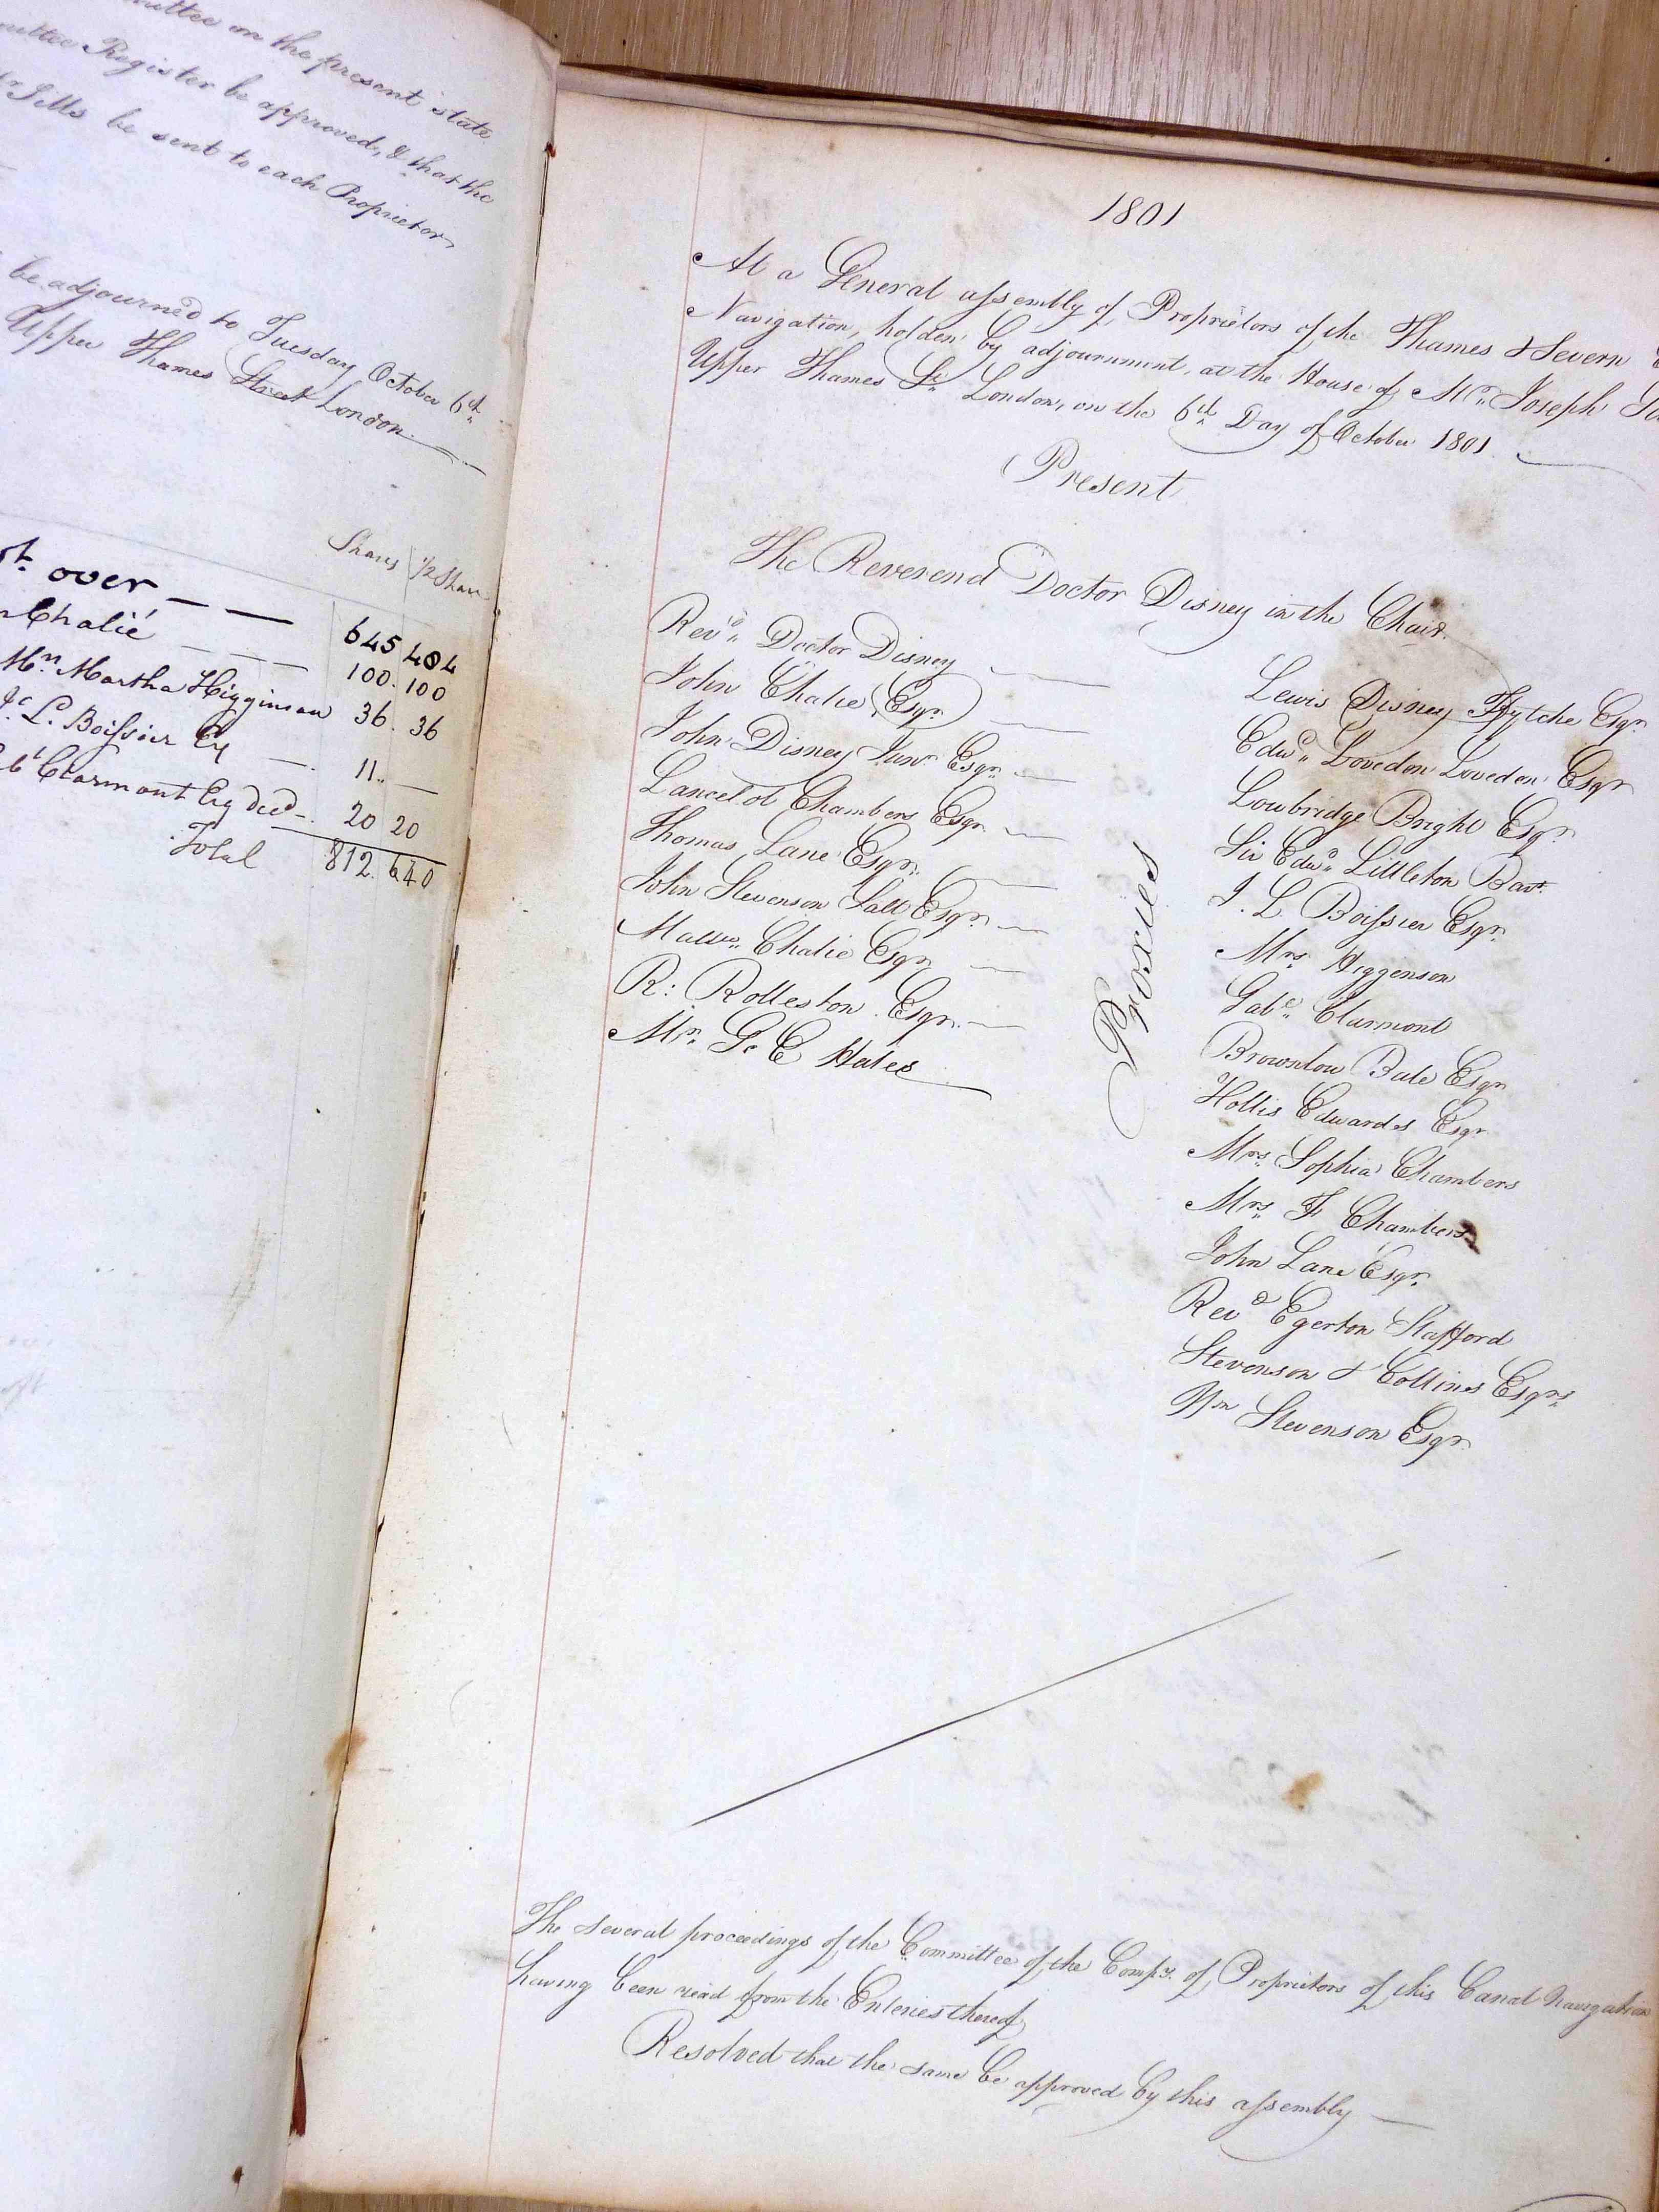 on the present state
Register be approved, & that the
be sent to each Proprietor,
be adjourned to Tuesday October 6th
Upper Thames Street London
Shares ½ Share
over
645 404
Chalié 100. 100
Mrs. Martha Higginson 36. 36
L. Boissier Esq 11..
Clarmont Esq decd 20 20
Total 812. 640
1801
At a General assembly of Proprietors of the Thames & Severn
Navigation, holden by adjournment, at the House of Mr. Joseph
Upper Thames St. London, on the 6th Day of October 1801.
Present
The Reverend Doctor Disney in the Chair.
Revd. Doctor Disney
John Chalie Esqr.
John Disney Junr. Esqr.
Lancelot Chambers Esqr.
Thomas Lane Esqr.
John Stevenson Salt Esqr.
Mattw. Chalie Esqr.
R: Rolleston Esqr.
Mr. G. C Hales
Proxies
Lewis Disney Ffytche Esqr.
Edwd. Loveden Loveden Esqr
Lowbridge Bright Esqr.
Sir Edwd. Littleton Bart.
J. L. Boissier Esqr.
Mrs. Higgenson
Gabl. Clarmont
Brownlow Bate Esqr
Hollis Edwards Esqr
Mrs. Sophia Chambers
Mrs. F Chambers
John Lane Esqr.
Revd Egerton Stafford
Stevenson & Collins Esqrs.
Wm Stevenson Esqr.
The several proceedings of the Committee of the Compy. of Proprietors of this Canal Navigation
having been read from the Enteries thereof,
Resolved that the same be approved by this assembly